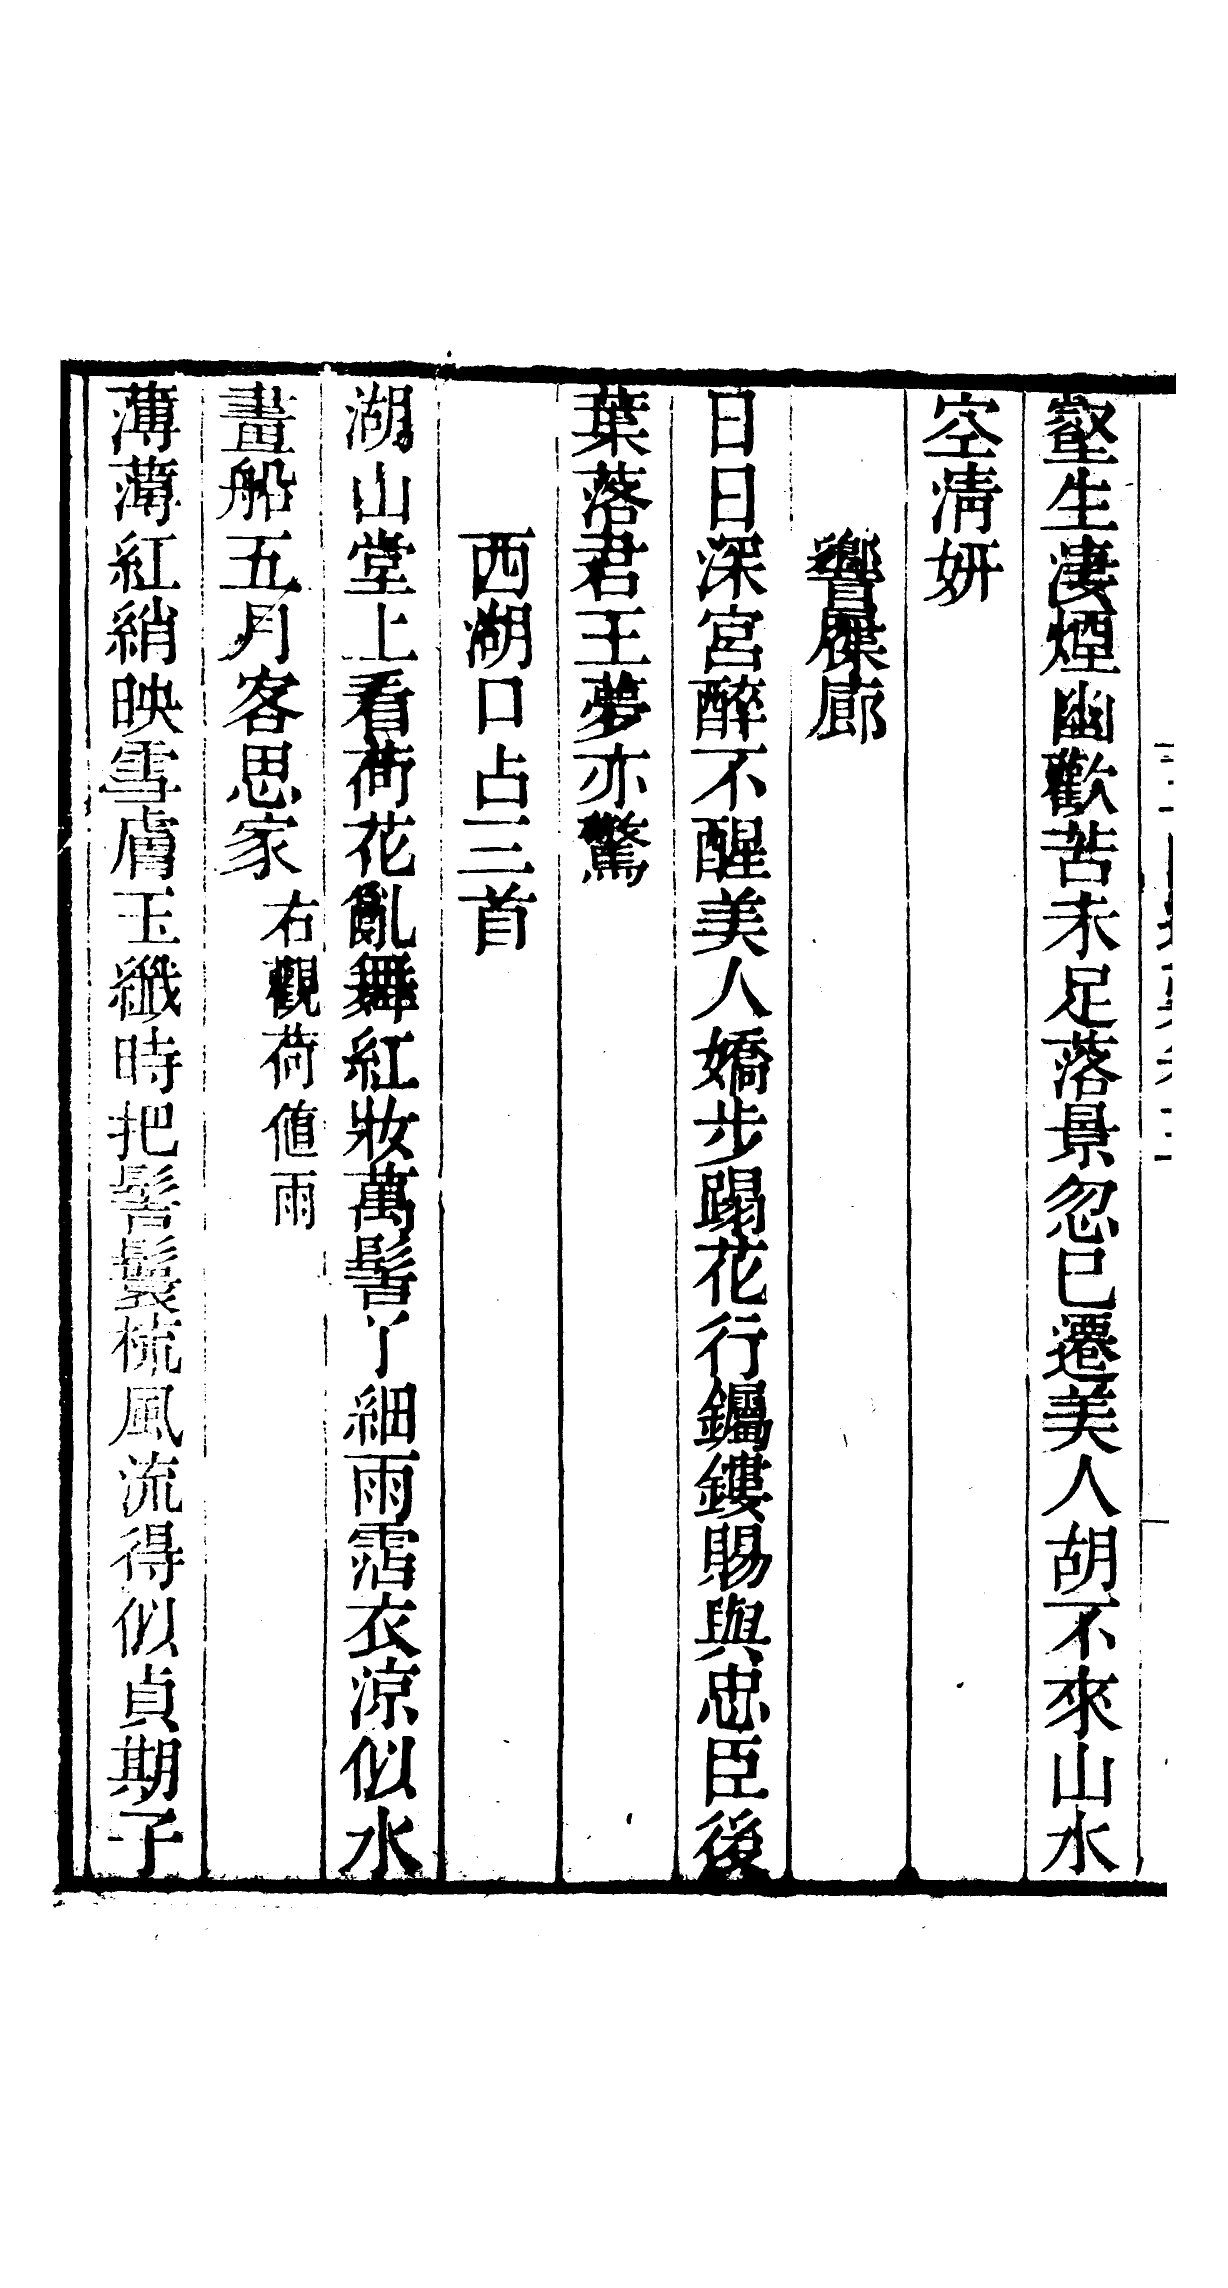 壑生淒煙幽歡苦未足落景忽已遷美人胡不來山水
空清妍
響屧廊
日日深宮醉不醒美人嬌步蹋花行钃鏤賜與忠臣後
葉落君王夢亦驚
西湖口占三首
湖山堂上看荷花亂舞紅妝萬髻丫細雨霑衣涼似水
畫船五月客思家
右觀荷値雨
薄薄紅綃映雪膚玉纖時把髻鬟梳風流得似貞期子